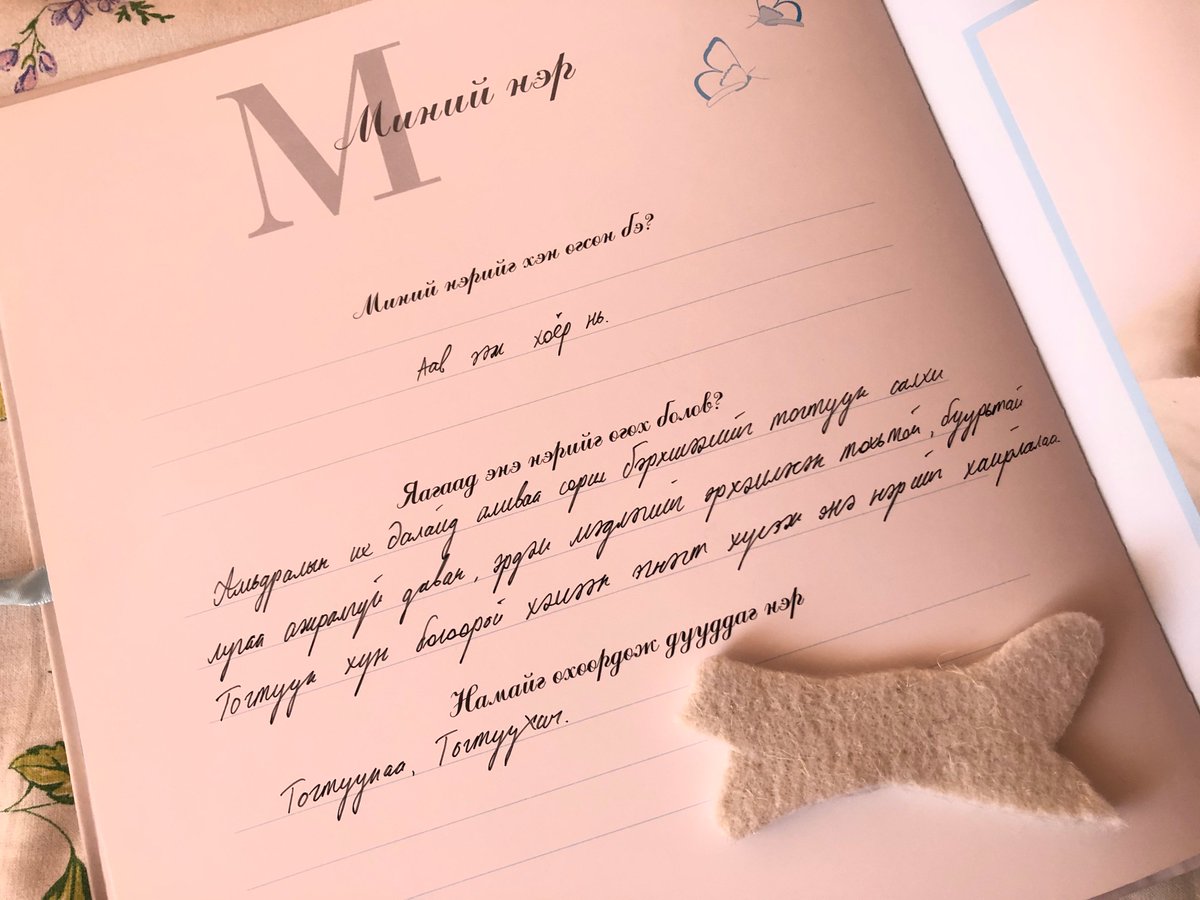 М
Миний нэр
Миний нэрийг хэн өгсөн бэ?
Аав ээж хоёр нь.
Яагаад энэ нэрийг өгөх болов?
Амьдралын их далайд аливаа сөрөг бэрхшээлийг тогтуун салхи
лугаа ажралгүй даван, эрдэм мэдлэгийг эрхэмлэсэн тохьтой, буурьтай
Тогтуун хүн болоорой хэмээн эгнэгт хүсэж энэ нэрийг хайрлалаа.
Намайг өхөөрдөж дууддаг нэр
Тогтуунаа, Тогтуухан.